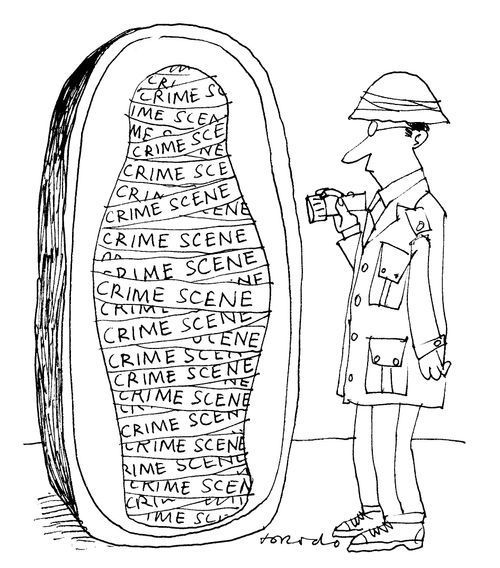 CRI
CRIME SC
IME SCEN
ME S
CRIME SCE
NE
CRIME SCE
CRIM
ENE
CRIME SCENE
CRIME SCENE
CRIME SCENE
NE
CRIME SCENE
CRIME SCENE
SCENE
CRIME SCEN
CRIME SCENE
CRIME SCENE
CRIME SCENE
CRIME SCENE
RIME SCENE
CRIME SCEN
CRIM
CRIME SC